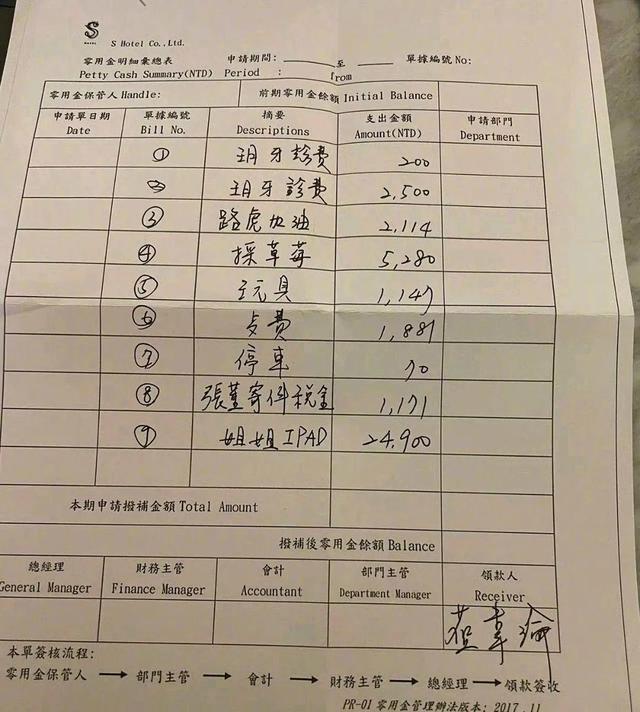 S
HOTEL
S Hotel Co.,Ltd.
零用金明細彙總表 申請期間: ____ 至 ____ 單據編號 No:
Petty Cash Summary(NTD) Period : from
零用金保管人 Handle: 前期零用金餘額 Initial Balance
申請單日期 單據編號 摘要 支出金額 申請部門
Date Bill No. Descriptions Amount(NTD) Department
① 玥牙診費 200
② 玥牙診費 2,500
③ 路虎加油 2,114
④ 採草莓 5,280
⑤ 玩具 1,147
⑥ 費 1,881
⑦ 停車 70
⑧ 張董寄件稅金 1,171
⑨ 姐姐 IPAD 24,900
本期申請撥補金額 Total Amount
撥補後零用金餘額 Balance
總經理 財務主管 會計 部門主管 領款人
General Manager Finance Manager Accountant Department Manager Receiver
本單簽核流程:
零用金保管人 → 部門主管 → 會計 → 財務主管 → 總經理 → 領款簽收
PR-01 零用金管理辦法版本: 2017.11